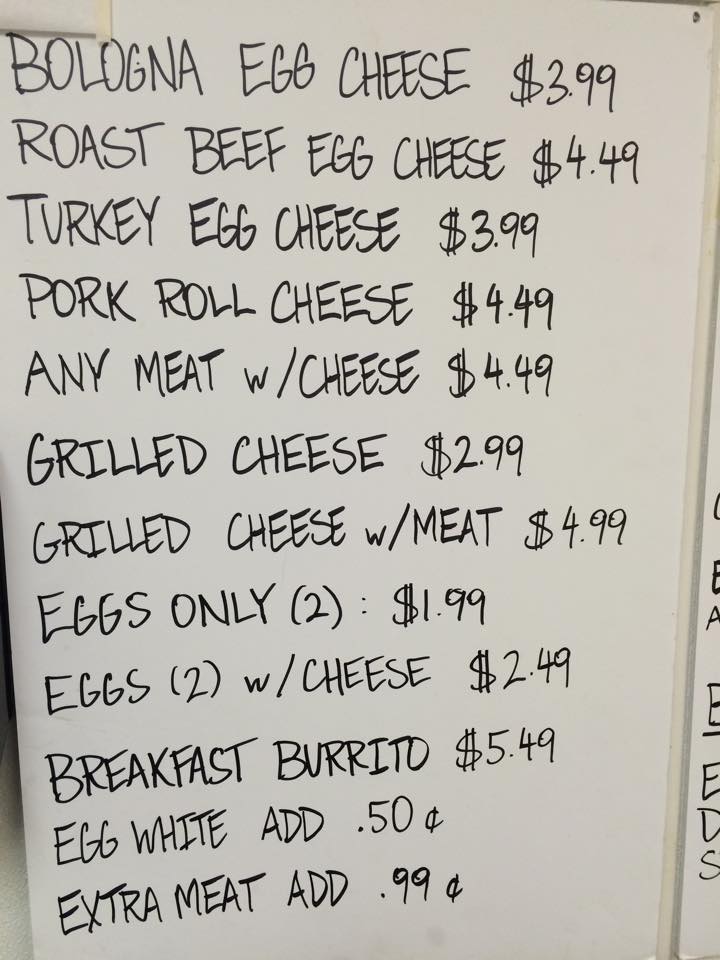 BOLOGNA EGG CHEESE $3.99
ROAST BEEF EGG CHEESE $4.49
TURKEY EGG CHEESE $3.99
PORK ROLL CHEESE $4.49
ANY MEAT w/CHEESE $4.49
GRILLED CHEESE $2.99
GRILLED CHEESE w/MEAT $4.99
EGGS ONLY (2) : $1.99
EGGS (2) w/CHEESE $2.49
BREAKFAST BURRITO $5.49
EGG WHITE ADD .50 ¢
EXTRA MEAT ADD .99 ¢